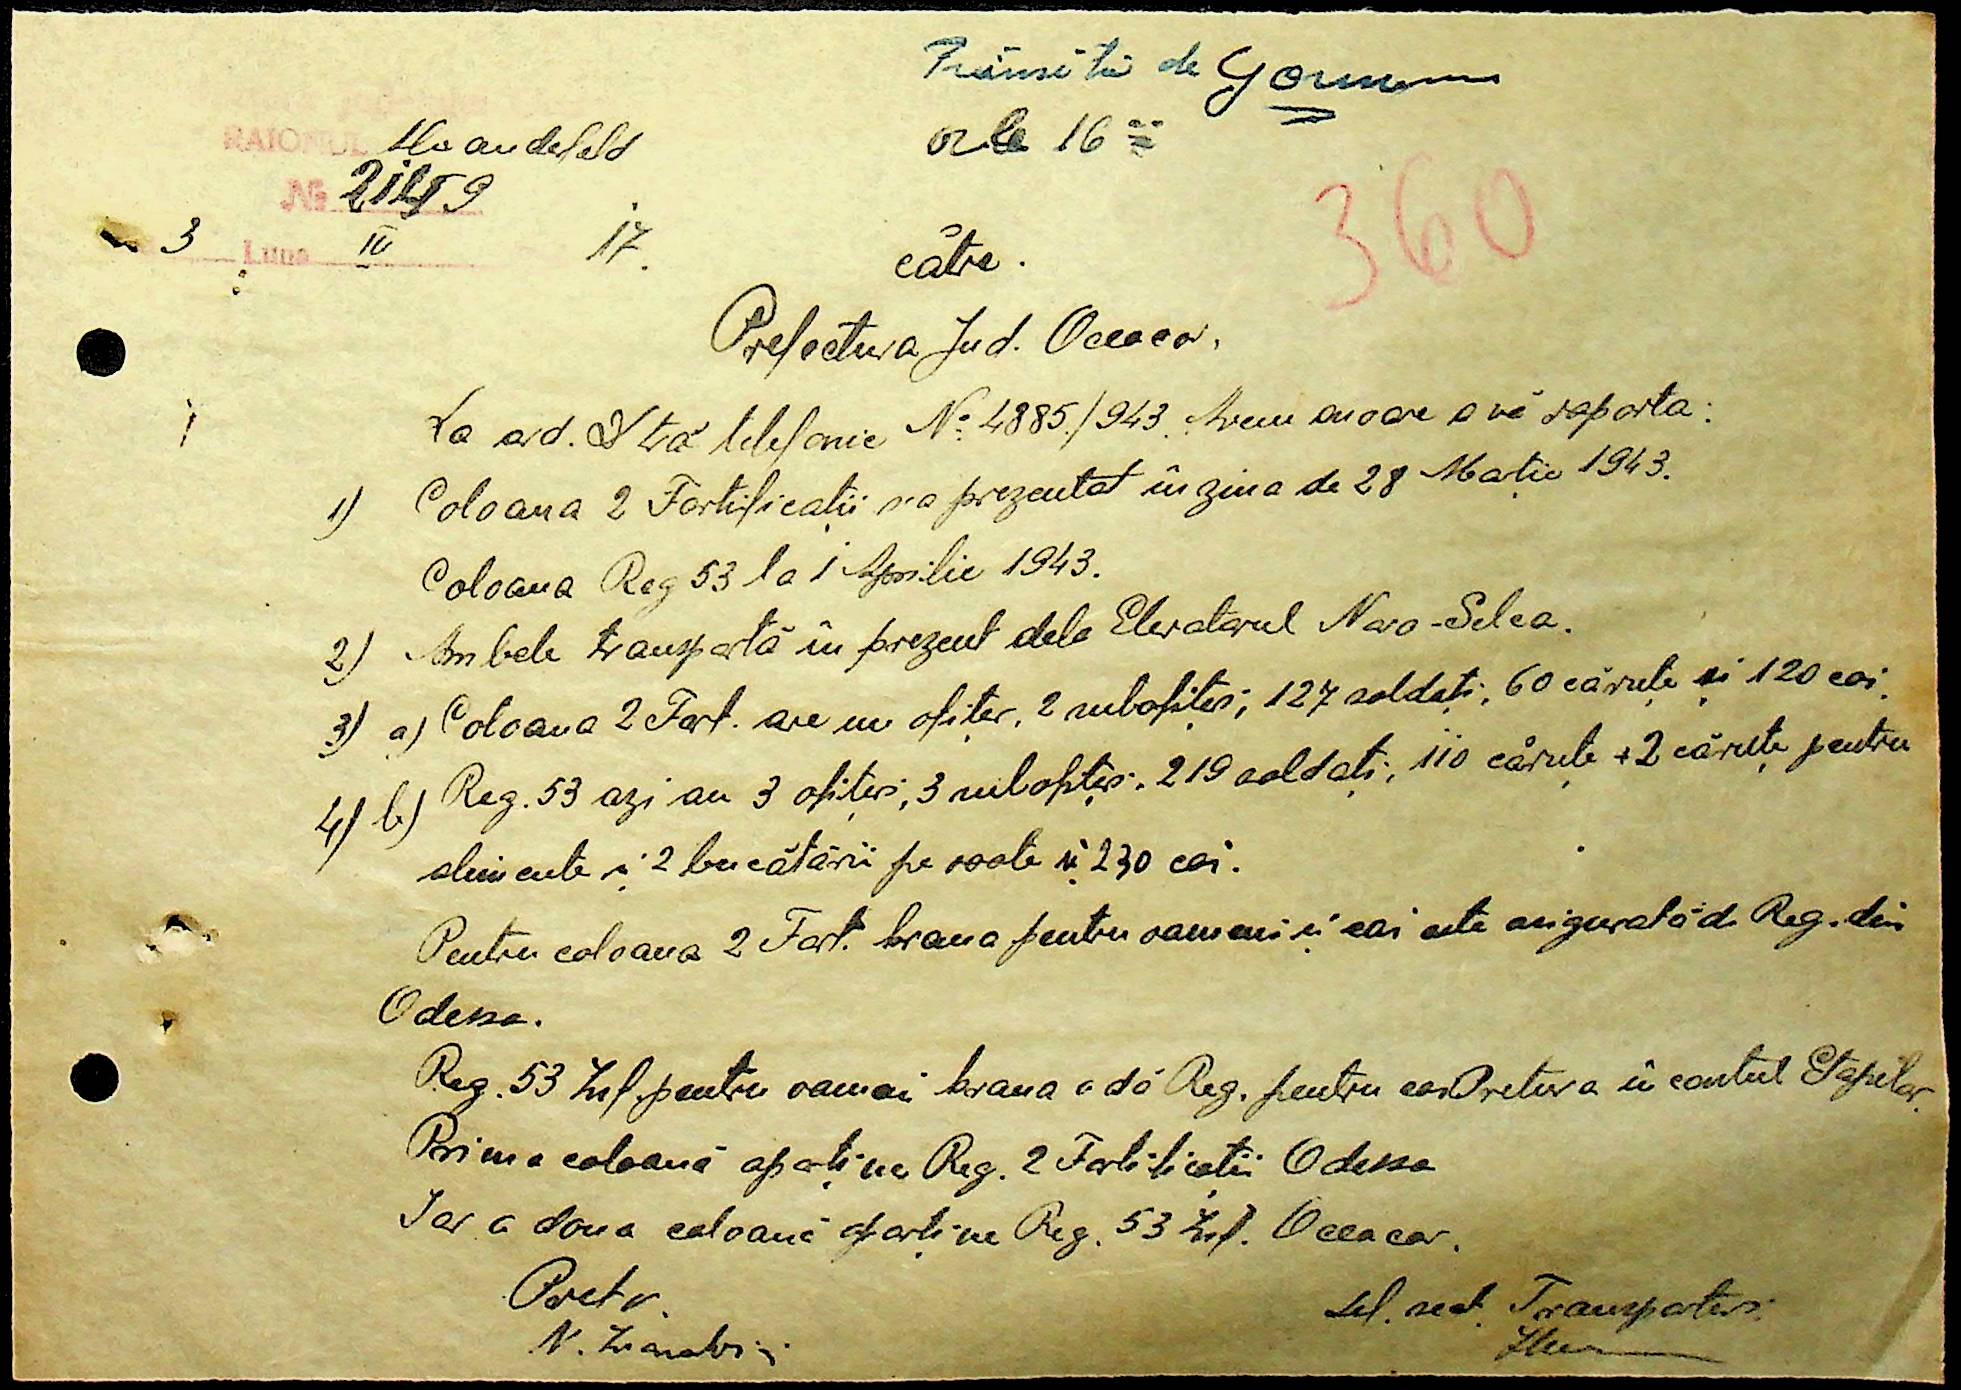 Trimisă de
orele 16
RAIONUL Landesfeld
№ 2149
3 Luna IV
17.
360
către.
Prefectura Jud. Oceacov,
La ord. Dvtră telefonic No. 4885/943. Avem onoare a vă raporta:
1) Coloana 2 Fortificații s'a prezentat în ziua de 28 Martie 1943.
Coloana Reg 53 la 1 Aprilie 1943.
2) Ambele transportă în prezent dela Elevatorul Novo-Selca.
3) a) Coloana 2 Fort. are un ofițer, 2 subofițeri, 127 soldați, 60 căruțe și 120 cai.
4) b) Reg. 53 azi au 3 ofițeri, 3 subofțeri, 219 soldați, 110 căruțe + 2 căruțe pentru
alimente și 2 bucătării pe roate și 230 cai.
Pentru coloana 2 Fort. hrana pentru oameni și cai este asigurată de Reg. din
Odessa.
Reg. 53 Inf. pentru oameni hrana o dă Reg. pentru cai Pretura în contul Etapelor.
Prima coloană aparține Reg. 2 Fortificații Odessa
Iar a doua coloană aparține Reg. 53 Inf. Oceacov.
Pretor.
N.
Șef. sect. Transporturi